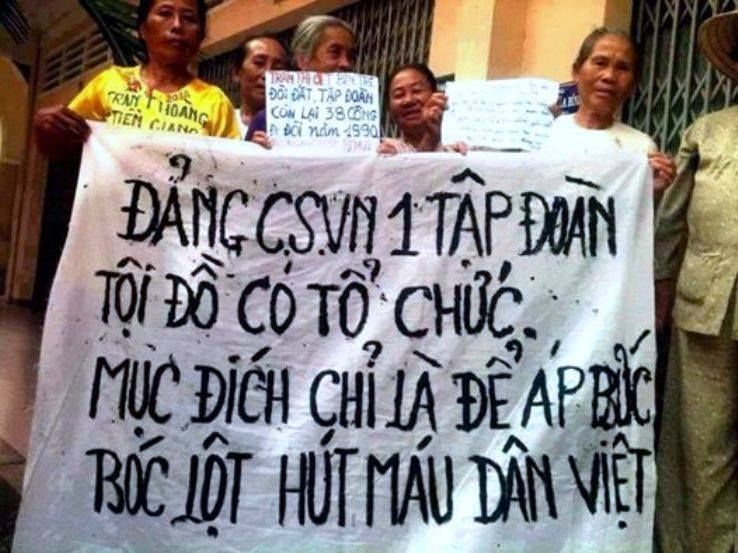 TRẦN T HOÀNG
TIỀN GIANG
TRẦN THỊ
BẾN TRE
ĐÒI ĐẤT, TẬP ĐOÀN
CÒN LẠI 38 CÔNG
ĐI ĐÒI NĂM 1990
ĐẢNG C.S.VN 1 TẬP ĐOÀN
TỘI ĐỒ CÓ TỔ CHỨC.
MỤC ĐÍCH CHỈ LÀ ĐỂ ÁP BUỨC
BÓC LỘT HÚT MÁU DÂN VIỆT